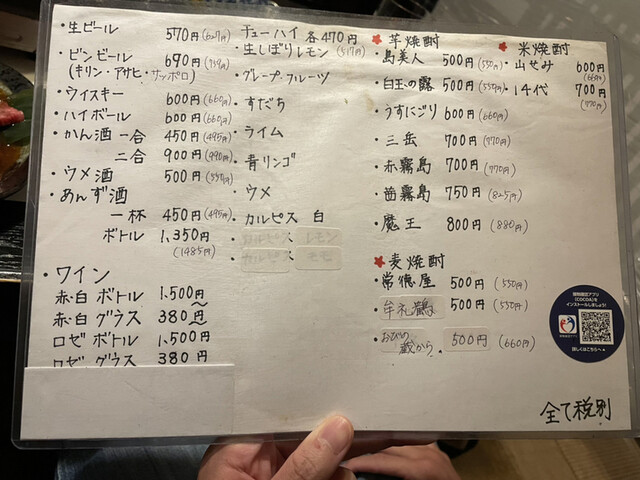 ・生ビール 570円(627円)
・ビンビール 690円(759円)
(キリン・アサヒ・サッポロ)
・ウイスキー 600円(660円)
・ハイボール 600円(660円)
・かん酒 一合 450円(495円)
二合 900円(990円)
・ウメ酒 500円(550円)
・あんず酒
一杯 450円(495円)
ボトル 1,350円
(1485円)
・ワイン
赤・白 ボトル 1,500円〜
赤・白 グラス 380円〜
ロゼ ボトル 1,500円
ロゼ グラス 380円
チューハイ 各470円
・生しぼりレモン (517円)
・グレープ・フルーツ
・すだち
・ライム
・青リンゴ
・ウメ
・カルピス 白
・カルピス レモン
・カルピス モモ
芋焼酎
・島美人 500円(550円)
・白玉の露 500円(550円)
・うすにごり 600円(660円)
・三岳 700円(770円)
・赤霧島 700円(770円)
・茜霧島 750円(825円)
・魔王 800円(880円)
麦焼酎
・常徳屋 500円(550円)
・牟礼鶴 500円(550円)
・おびの蔵から 500円(660円)
米焼酎
・山せみ 600円
(660円)
・14代 700円
(770円)
接触確認アプリ
(COCOA)を
インストールしましょう!
詳しくはこちらへ
全て税別